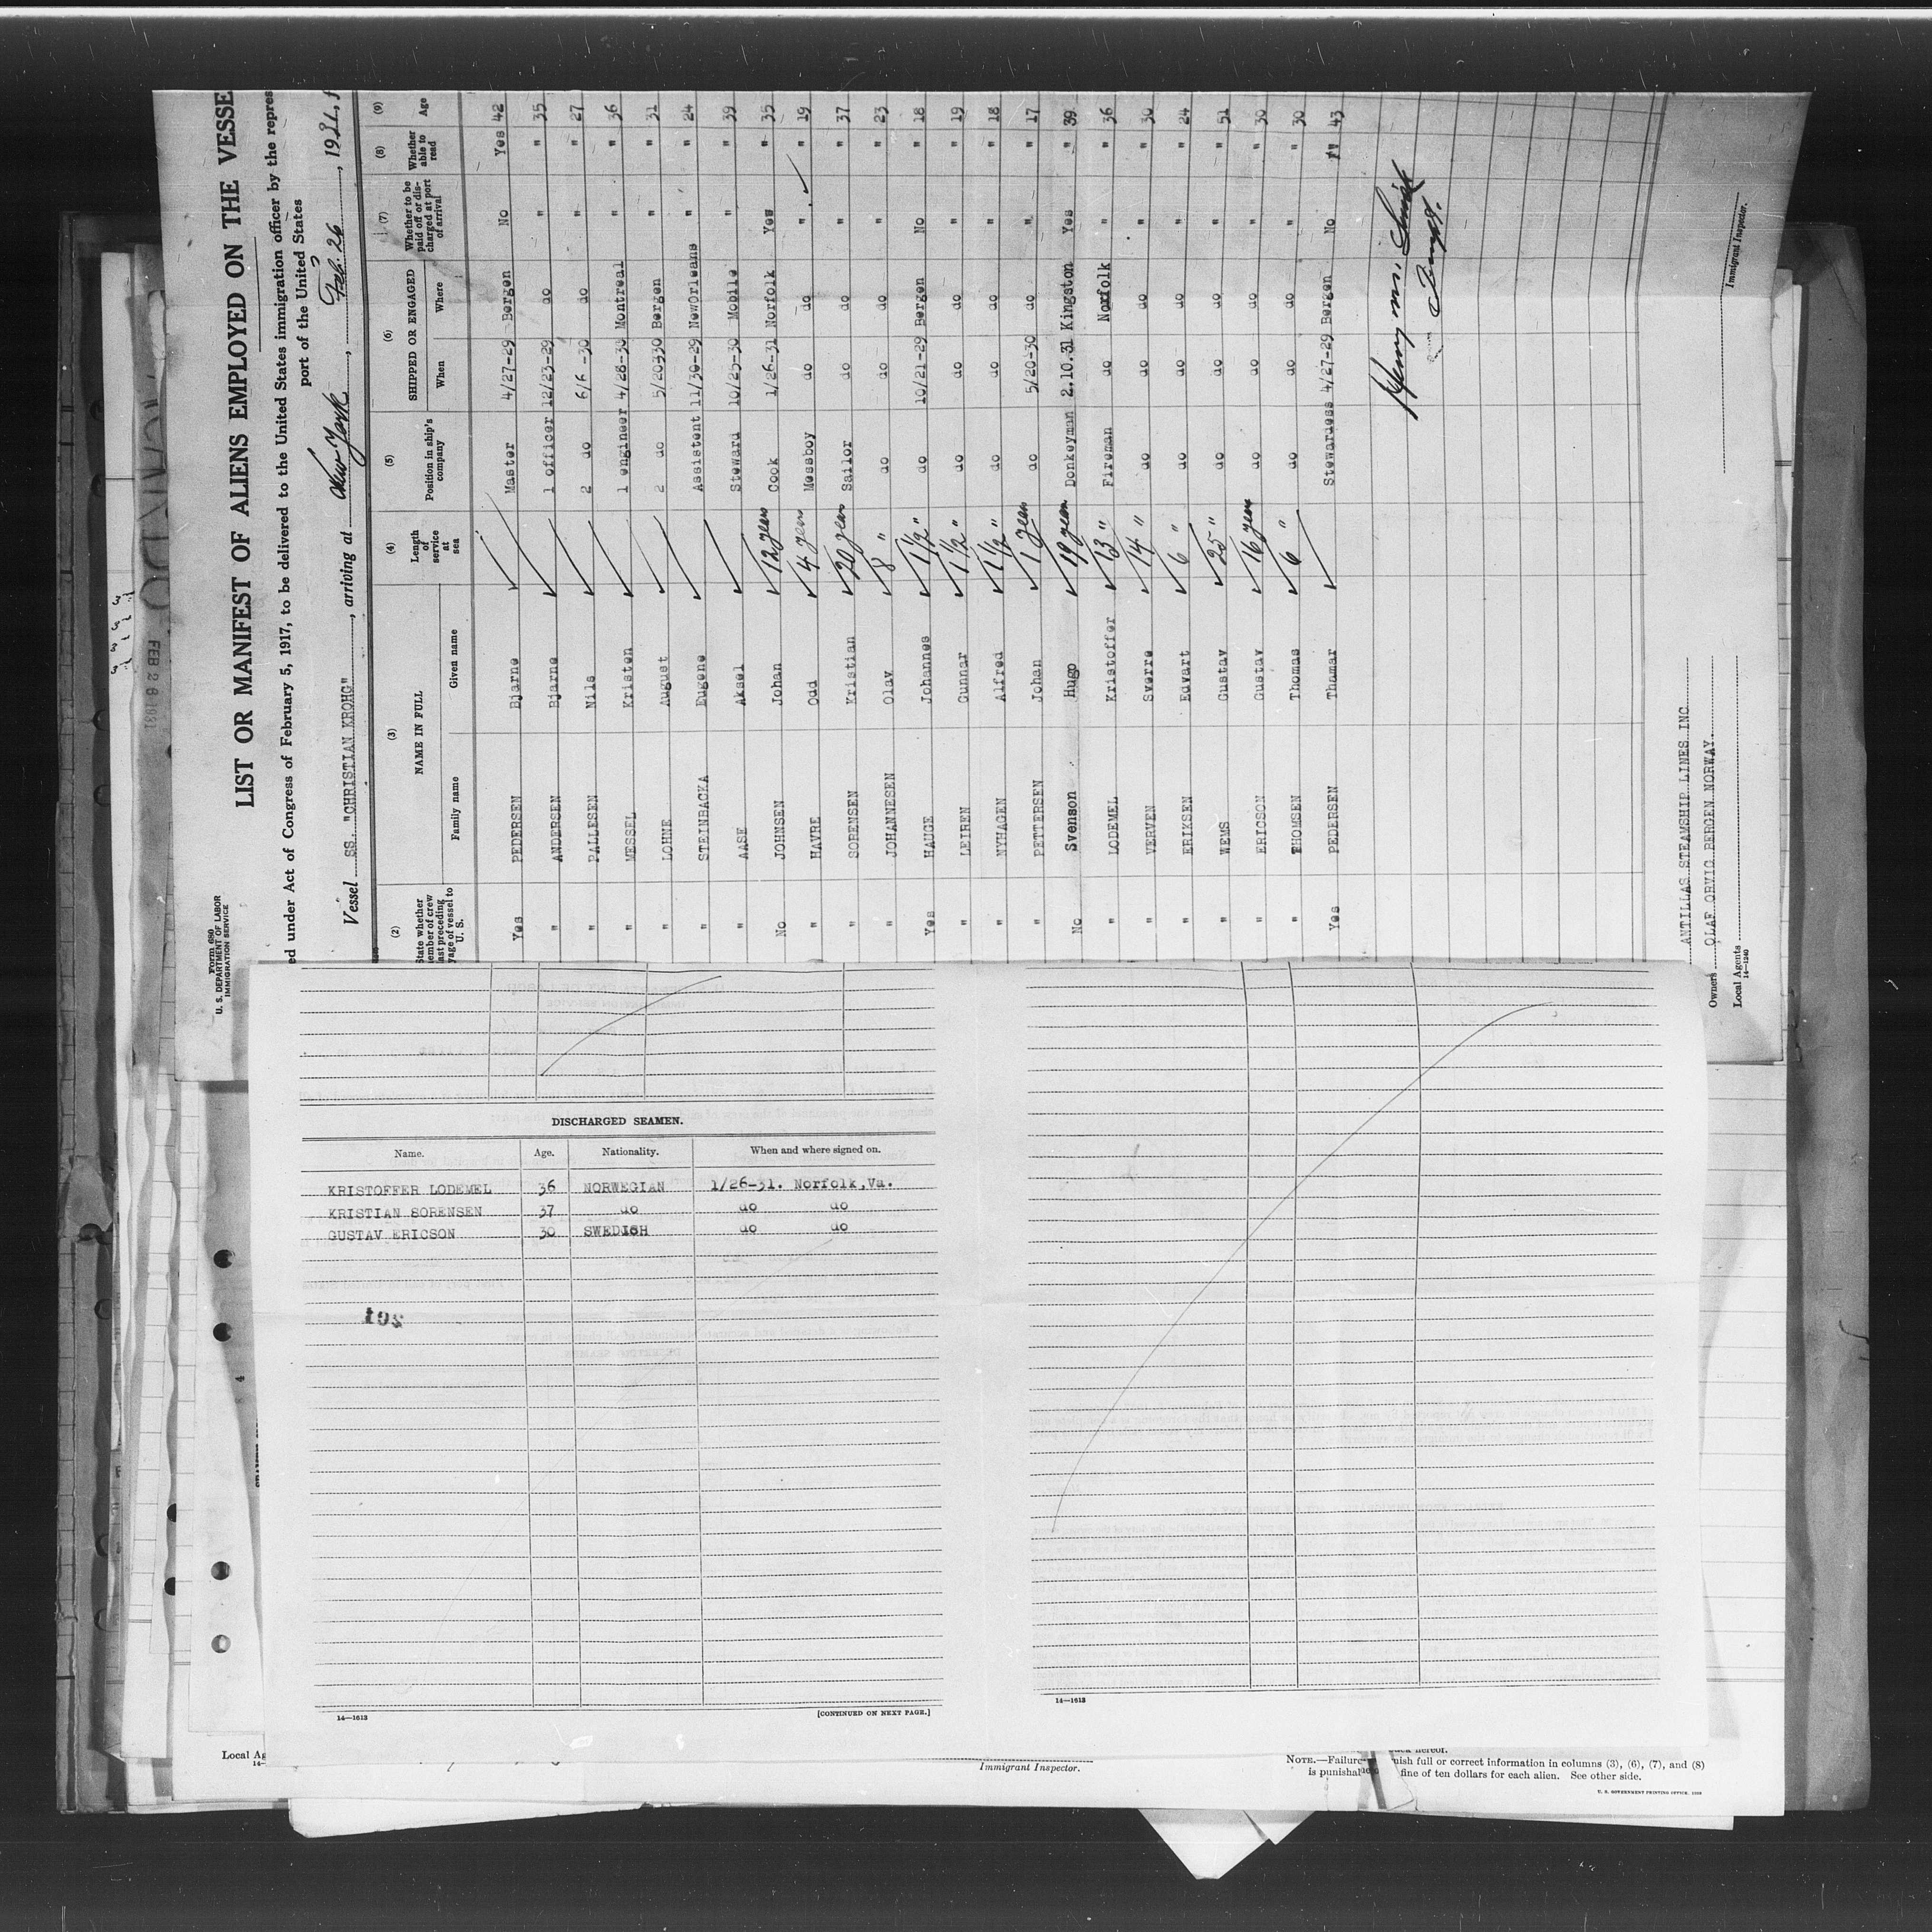 Form 680
U. S. DEPARTMENT OF LABOR
IMMIGRATION SERVICE
LIST OR MANIFEST OF ALIENS EMPLOYED ON THE VESSE
ed under Act of Congress of February 5, 1917, to be delivered to the United States immigration officer by the repres
port of the United States
Vessel SS. "CHRISTIAN KROHG", arriving at New York, Feb. 26, 1931, f
(2) (3) (4) (5) (6) (7) (8) (9)
State whether member of crew last preceding voyage of vessel to U. S. NAME IN FULL Family name Given name Length of service at sea Position in ship's company SHIPPED OR ENGAGED When Where Whether to be paid off or discharged at port of arrival Whether able to read Age
Yes PEDERSEN Bjarne Master 4/27-29 Bergen No Yes 42
" ANDERSEN Bjarne 1 officer 12/23-29 do " " 35
" PALLESEN Nils 2 do 6/6 -30 do " " 27
" MESSEL Kristen 1 engineer 4/28-30 Montreal " " 36
" LOHNE August 2 do 5/20330 Bergen " " 31
" STEINBACKA Eugene Assistent 11/30-29 NewOrleans " " 24
" AASE Aksel Steward 10/25-30 Mobile " " 39
No JOHNSEN Johan 12 years Cook 1/26-31 Norfolk Yes " 35
" HAVRE Odd 4 years Messboy do do " " 19
" SORENSEN Kristian 20 years Sailor do do " " 37
" JOHANNESEN Olav 8 " do do do " " 23
Yes HAUGE Johannes 1½ " do 10/21-29 Bergen No " 18
" LEIREN Gunnar 1½ " do do do " " 19
" NYHAGEN Alfred 1½ " do do do " " 18
" PETTERSEN Johan 1 year do 5/20-30 do " " 17
No Svenson Hugo 19 years Donkeyman 2.10.31 Kingston Yes " 39
" LODEMEL Kristoffer 13 " Fireman do Norfolk " " 36
" VERVEN Sverre 14 " do do do " " 30
" ERIKSEN Edvart 6 " do do do " " 24
" WEMS Gustav 25 " do do do " " 51
" ERICSON Gustav 16 years do do do " " 30
" THOMSEN Thomas 6 " do do do " " 30
Yes PEDERSEN Thamar Stewardess 4/27-29 Bergen No " 43
Immigrant Inspector.
ANTILLAS STEAMSHIP LINES INC
Owners OLAF ORVIG BERGEN NORWAY.
Local Agents
14—1240
FEB 28 1931
DISCHARGED SEAMEN.
Name. Age. Nationality. When and where signed on.
KRISTOFFER LODEMEL 36 NORWEGIAN 1/26-31. Norfolk,Va.
KRISTIAN SORENSEN 37 do do do
GUSTAV ERICSON 30 SWEDISH do do
201
14—1613
[CONTINUED ON NEXT PAGE.]
14—1613
4
Local Ag
14—
Immigrant Inspector.
hereof.
NOTE.—Failure nish full or correct information in columns (3), (6), (7), and (8)
is punishal fine of ten dollars for each alien. See other side.
U. S. GOVERNMENT PRINTING OFFICE